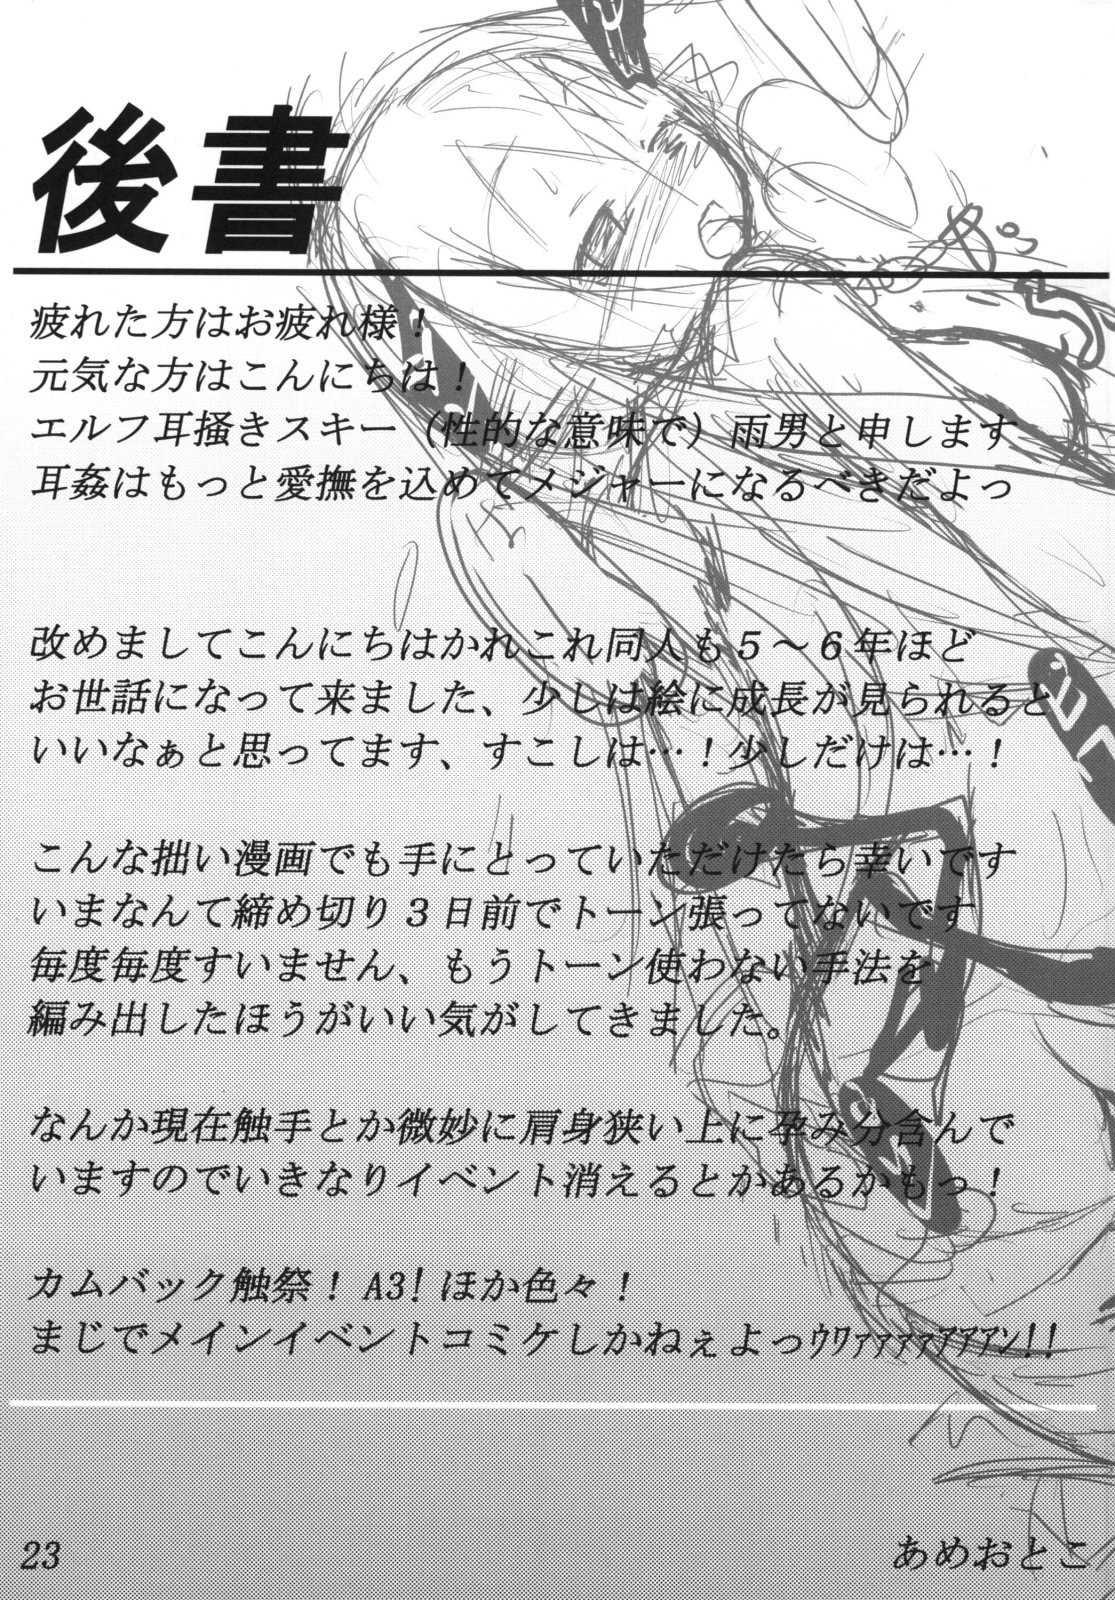 後書
疲れた方はお疲れ様！
元気な方はこんにちは！
エルフ耳掻きスキー（性的な意味で）雨男と申します
耳姦はもっと愛撫を込めてメジャーになるべきだよっ
改めましてこんにちはかれこれ同人も５～６年ほど
お世話になって来ました、少しは絵に成長が見られると
いいなぁと思ってます、すこしは…！少しだけは…！
こんな拙い漫画でも手にとっていただけたら幸いです
いまなんて締め切り３日前でトーン張ってないです
毎度毎度すいません、もうトーン使わない手法を
編み出したほうがいい気がしてきました。
なんか現在触手とか微妙に肩身狭い上に孕み分含んで
いますのでいきなりイベント消えるとかあるかもっ！
カムバック触祭！A3！ほか色々！
まじでメインイベントコミケしかねぇよっｳﾜｧｧｧｧｱｱｱﾝ!!
23
あめおとこ